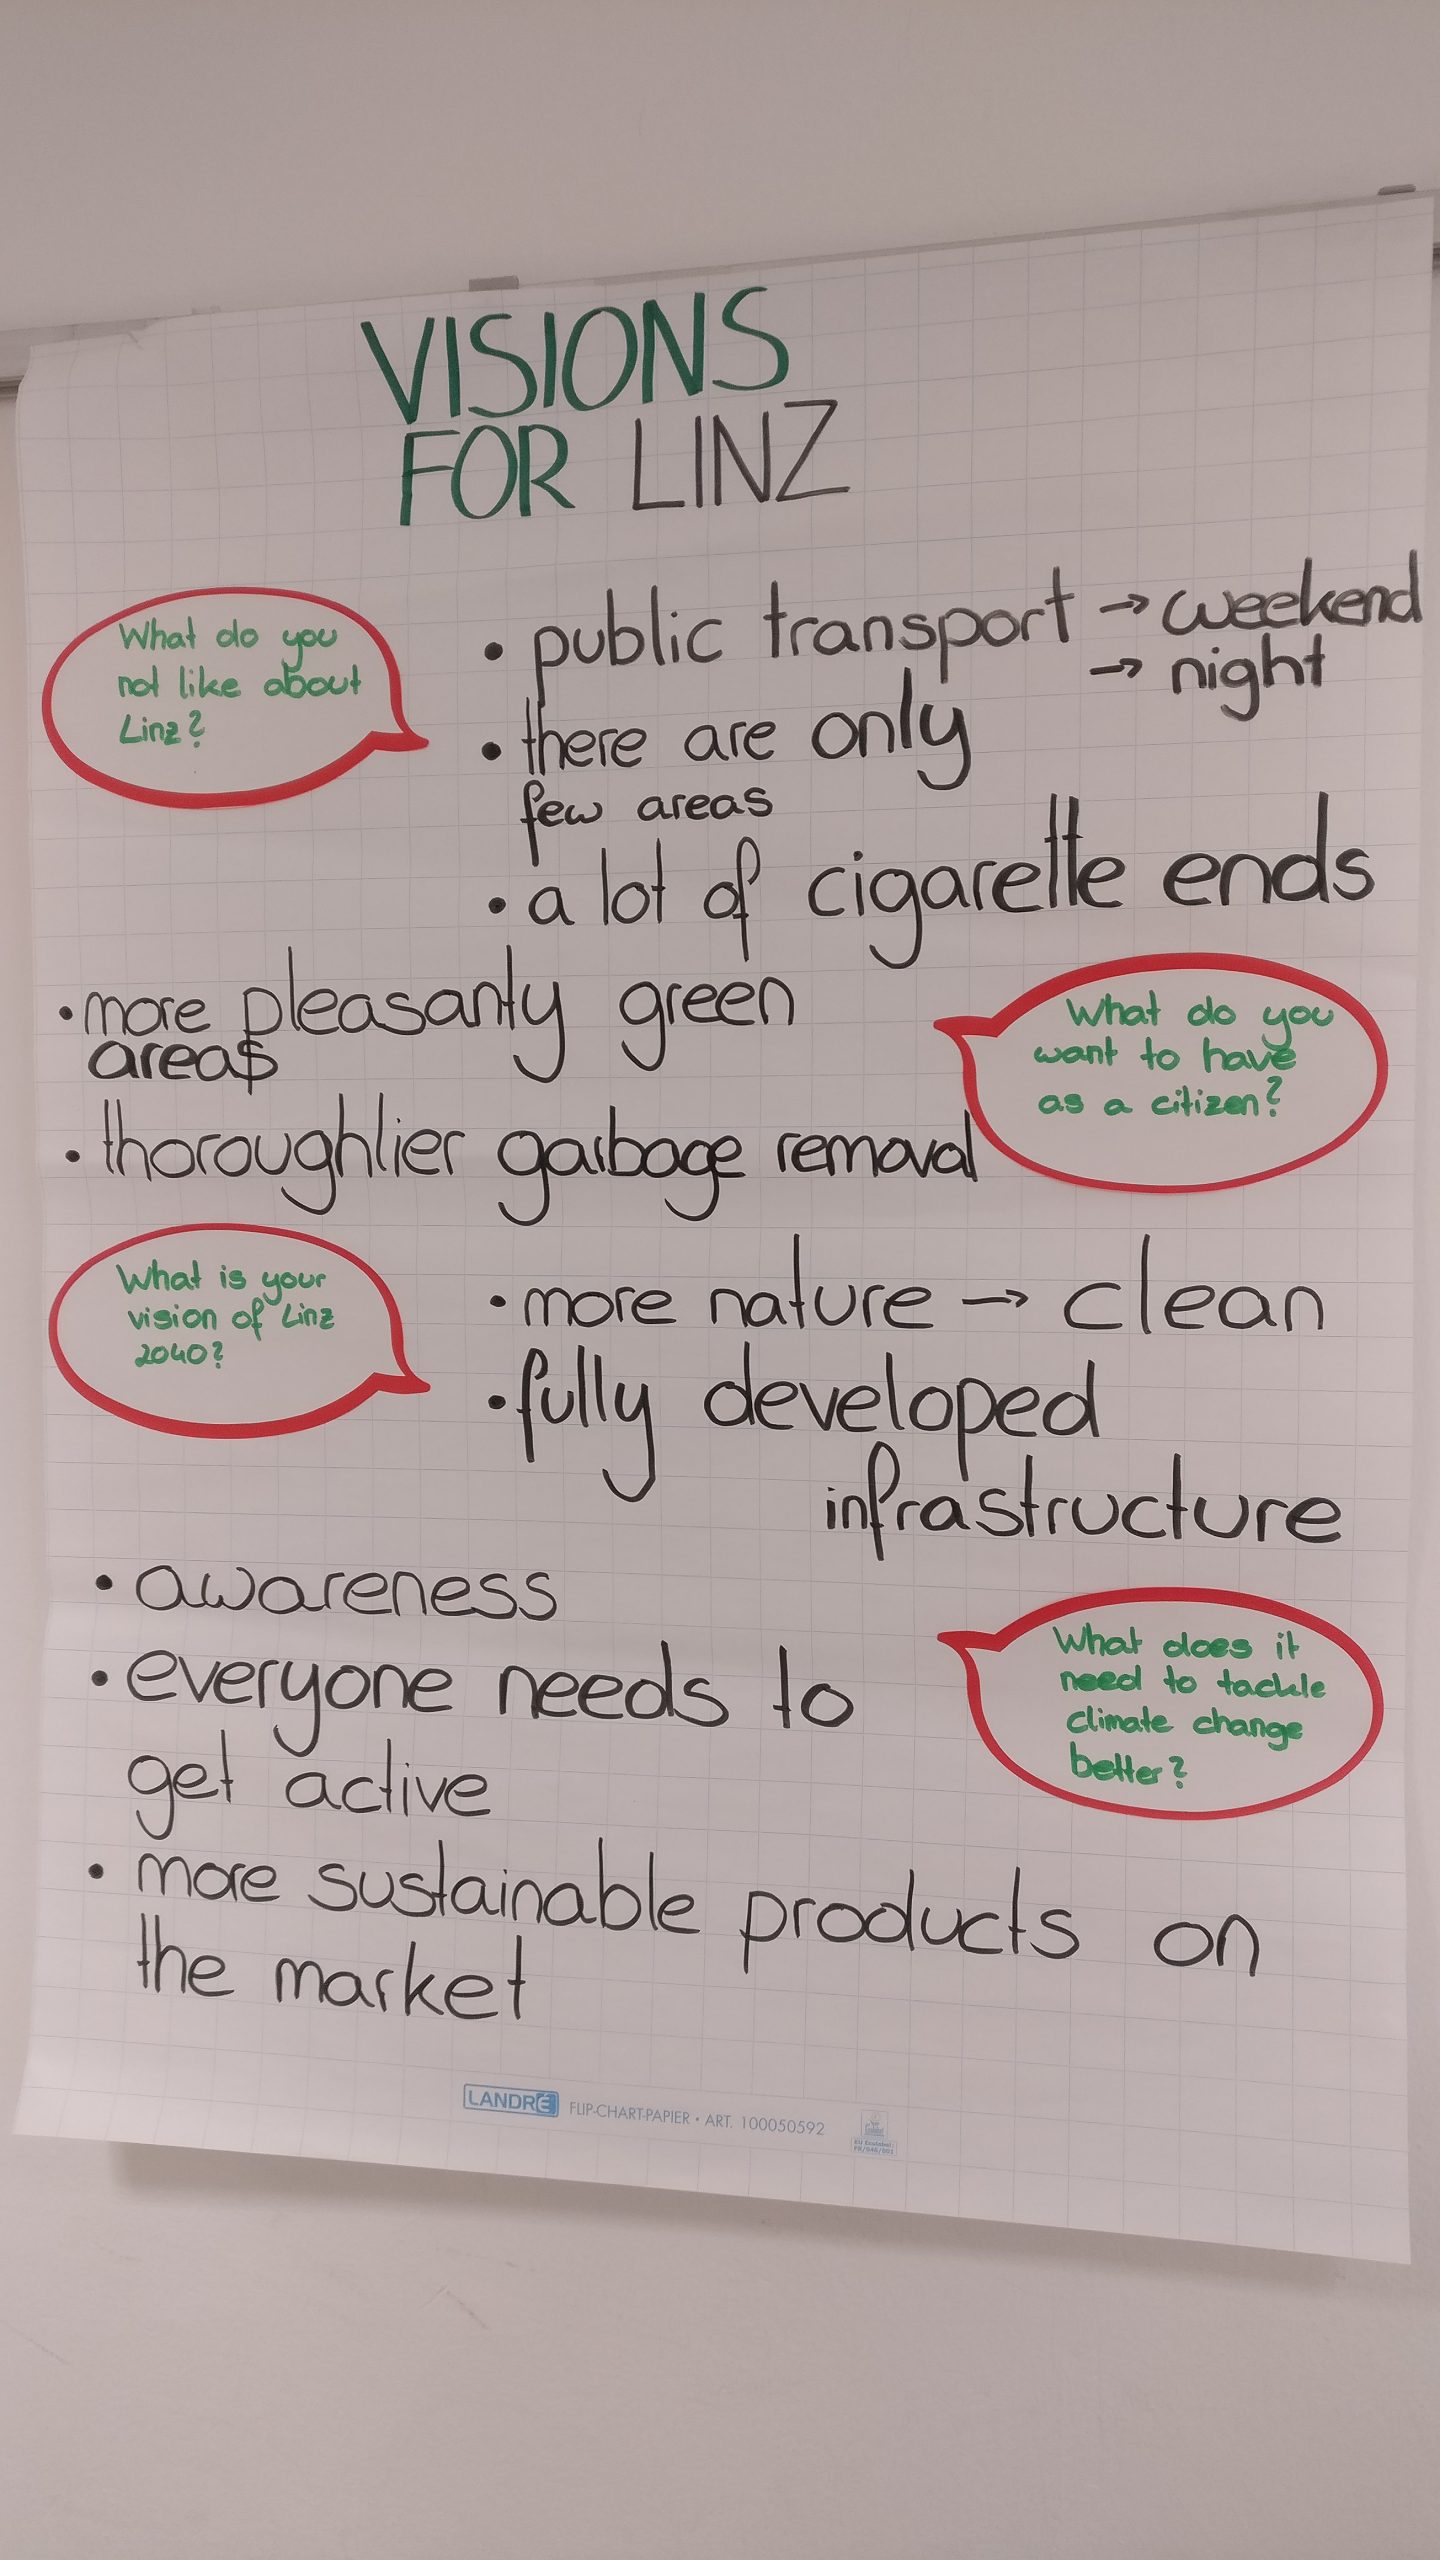 VISIONS
FOR LINZ
What do you
not like about
Linz?
• public transport → weekend
→ night
• there are only
few areas
• a lot of cigarette ends
What do you
want to have
as a citizen?
• more pleasantly green
areas
• thoroughlier garbage removal
What is your
vision of Linz
2040?
• more nature → clean
• fully developed
infrastructure
What does it
need to tackle
climate change
better?
• awareness
• everyone needs to
get active
• more sustainable products on
the market
LANDRÉ FLIP-CHART-PAPIER • ART. 100050592